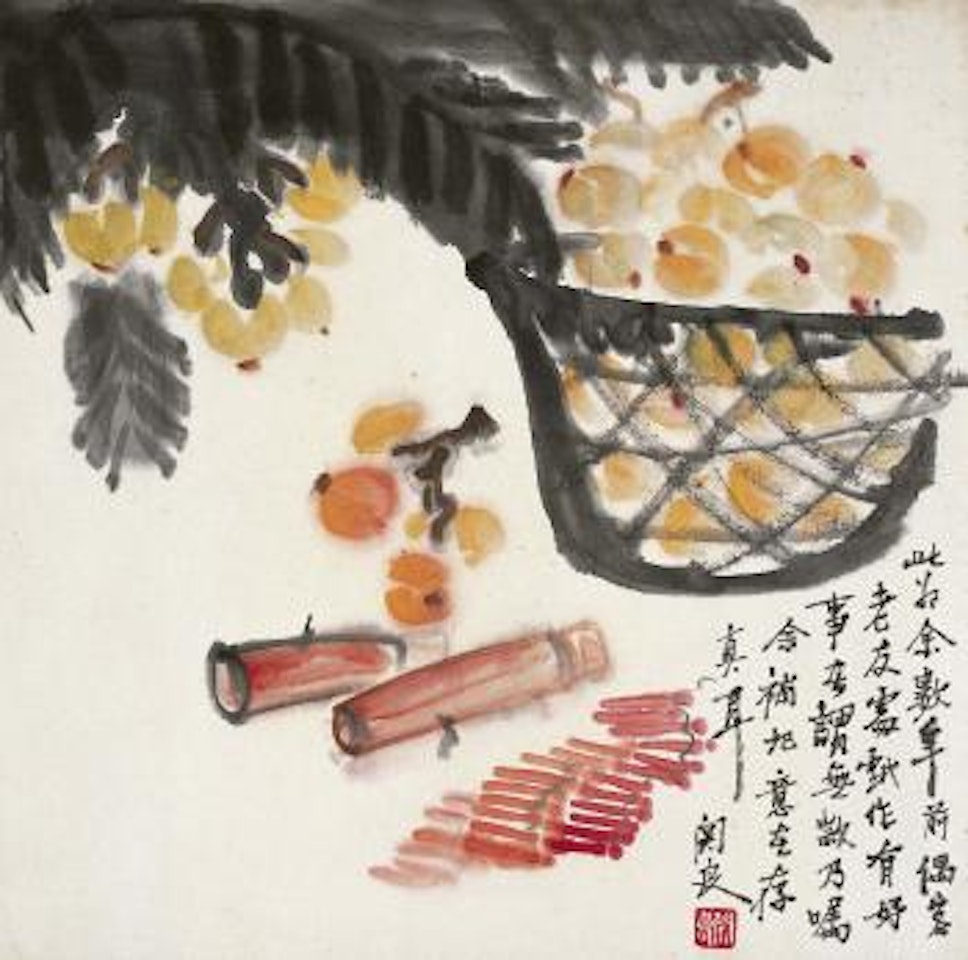 此为余数年前偶客
老友處戲作有好
事者謂無款乃囑
余補記意在存
真耳
关良